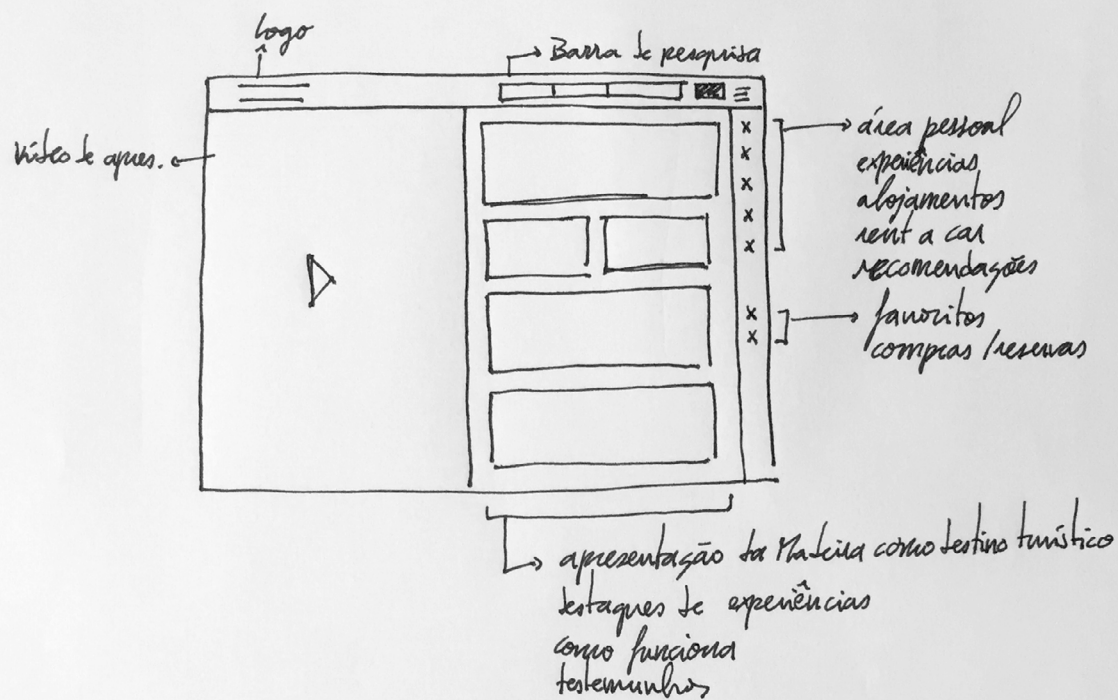 logo
Barra de pesquisa
Vídeo de apres.
área pessoal
experiências
alojamentos
rent a car
recomendações
favoritos
compras / reservas
apresentação da Madeira como destino turístico
destaques de experiências
como funciona
testemunhos